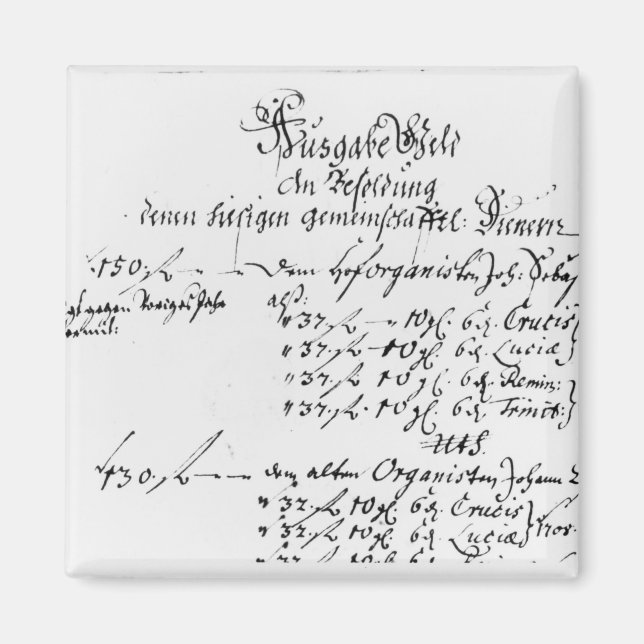 Ausgabe Geld
An Besoldung
denen hiesigen gemeinschafftl: Dienern
150. fl — — dem Hoforganisten Joh: Seba
gegen voriges Jahr
alß:
" 37. fl — 10 gl. 6 d. Crucis
" 37. fl 10 gl. 6 d. Luciæ
" 37. fl 10 gl. 6 d. Remin:
" 37. fl 10 gl. 6 d. Trinit:
uts.
130. fl — — dem alten Organisten Johann
" 32. fl 10 gl. 6 d. Crucis
" 32. fl 10 gl. 6 d. Luciæ } 1708.